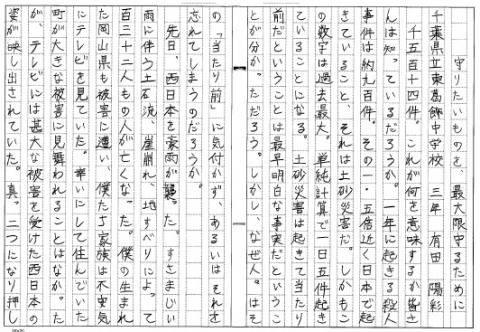 守りたいものを、最大限守るために
千葉県立東葛飾中学校 三年 有田 陽彩
千五百十四件。これが何を意味するか皆さ
んは知っているだろうか。一年に起きる殺人
事件は約九百件。その一・五倍近く日本で起
きていること、それは土砂災害だ。しかもこ
の数字は過去最大。単純計算で一日五件起き
ていることになる。土砂災害は起きて当たり
前だということは最早明白な事実だというこ
とが分かっただろう。しかし、なぜ人々はそ
の「当たり前」に気付かず、あるいはそれさえ
忘れてしまうのだろうか。
先日、西日本を豪雨が襲った。すさまじい
雨に伴う土石流、崖崩れ、地すべりによって
百三十二人もの人が亡くなった。僕の生まれ
た岡山県も被害に遭い、僕たち家族は不安気
にテレビを見ていた。幸いにして住んでいた
町が大きな被害に見舞われることはなかった
が、テレビには甚大な被害を受けた西日本の
姿が映し出されていた。真っ二つになり押し